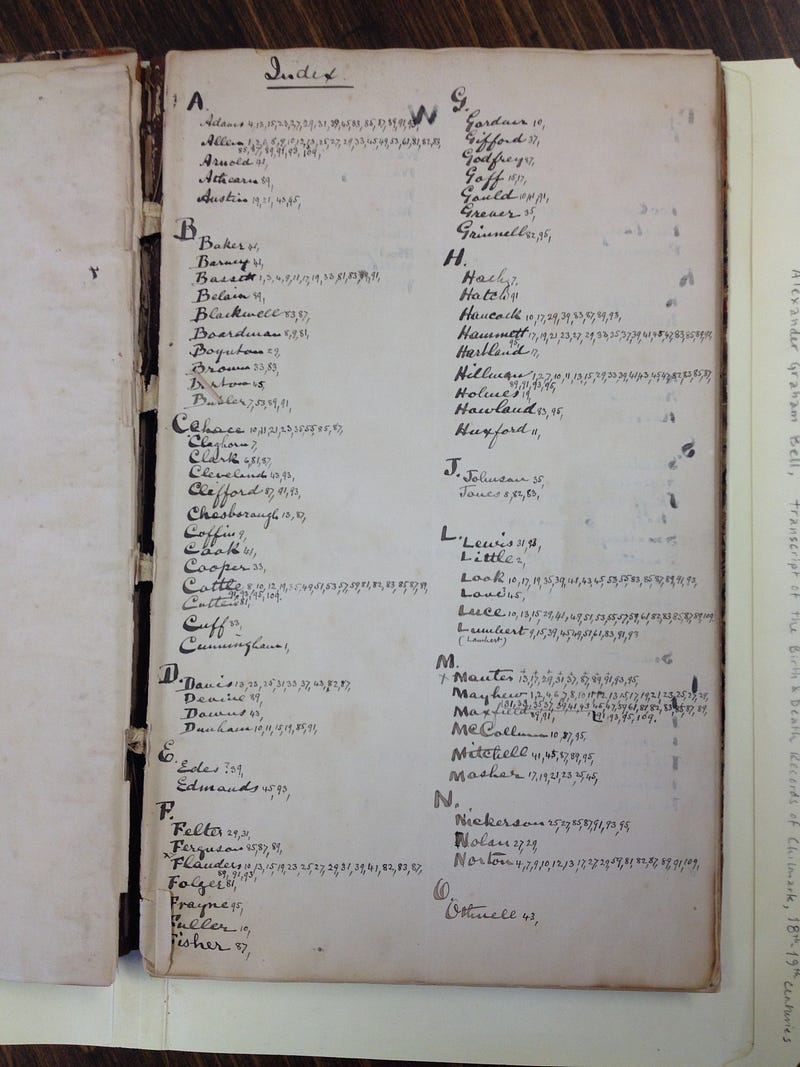 Index
A.
Adams 4,13,15,23,27,29,31,39,45,83,85,87,89,91,93,
Allen 1,2,6,8,9,10,12,13,25,27,29,33,45,49,53,61,81,82,83,
85,87,89,91,93,109,
Arnold 41,
Athearn 89,
Austin 19,21,43,45,
B
Baker 41,
Barney 41,
Bassett 1,3,4,9,11,17,19,33,81,83,89,91,
Belain 89,
Blackwell 83,87,
Boardman 8,9,81,
Boynton 29,
Brown 33,83,
45,
Butler 7,53,89,91,
C
Chace 10,11,21,23,35,55,85,87,
Claghorn 7,
Clark 6,81,87,
Cleveland 43,93,
Clifford 87,91,93,
Chesborough 13,87,
Coffin 9,
Cook 41,
Cooper 33,
Cottle 8,10,12,19,35,49,51,53,57,59,81,82,83,85,87,89,
91,93,95,109.
81,
Cuff 33,
Cunningham 1,
D.
Davis 13,23,25,31,33,37,43,82,87,
Devine 89,
Downs 43,
Dunham 10,11,15,19,85,91,
E.
Edes ? 39,
Edmunds 45,93,
F.
Felter 29,31,
Ferguson 85,87,89,
x Flanders 10,13,15,19,23,25,27,29,31,39,41,82,83,87,
89,91,93,
Folger 81,
Frayne 95,
Fuller 10,
Fisher 87,
W
G.
Garduer 10,
Gifford 37,
Godfrey 87,
Goff 15,17,
Gould 10,41,91,
Greuer 35,
Grinnell 82,95,
H.
7,
Hatch 91
Hancock 10,17,29,39,83,87,89,93,
Hammett 17,19,21,23,27,29,33,35,37,39,41,45,47,83,85,89,91,
95,
Hartland 17,
Hillman 1,2,7,10,11,13,15,29,33,39,41,43,45,47,82,83,85,87,
89,91,93,95,
Holmes 19,
Howland 83,95,
Huxford 11,
J.
Johnson 35,
Jones 8,82,83,
L.
Lewis 31,93,
Little 2,
Look 10,17,19,35,39,41,43,45,53,55,83,85,87,89,91,93,
45,
Luce 10,13,15,29,41,49,51,53,55,57,59,61,82,83,85,87,89,109.
Lumbert 9,15,39,45,49,51,61,83,91,93
(Lambert)
M.
x Manter 13,17,29,31,37,87,89,91,93,95,
Mayhew 1,2,4,6,7,8,10,11,12,13,15,17,19,21,23,25,27,29,
31,33,35,37,39,41,43,45,47,59,61,81,82,83,85,87,89,
Maxfield 89,91, 91,93,95,109.
McCollum 10,87,95,
Mitchell 41,45,87,89,95,
Mosher 17,19,21,23,25,45,
N.
Nickerson 25,27,85,87,91,93,95,
Nolan 27,29,
Norton 4,7,9,10,12,13,17,27,29,59,81,82,87,89,91,109,
O.
Othuell 43,
Alexander Graham Bell, transcript of the Birth & Death Records of Chilmark, 18th-19th centuries